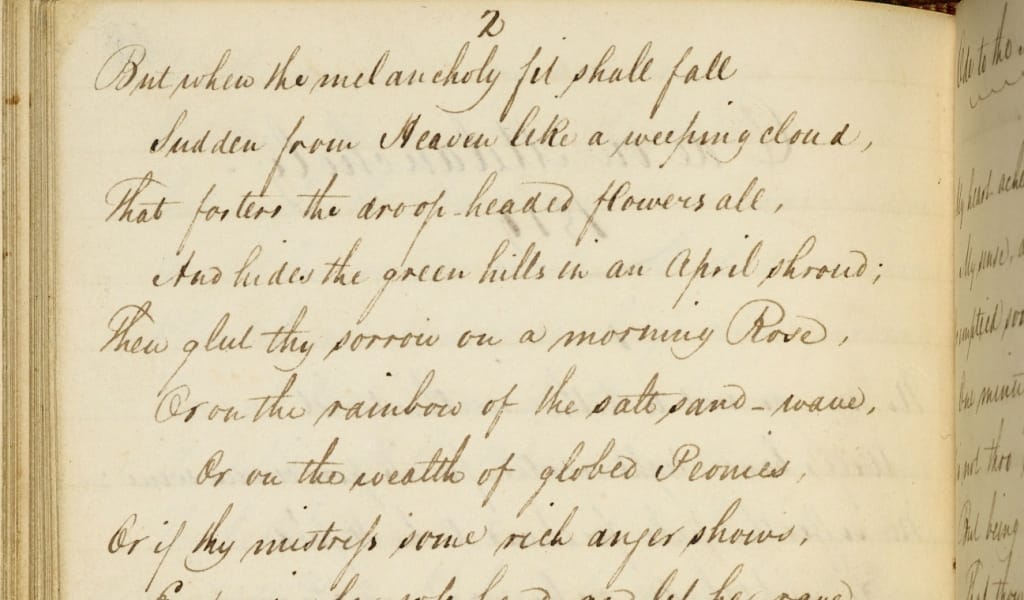 2
But when the melancholy fit shall fall
Sudden from Heaven like a weeping cloud,
That fosters the droop-headed flowers all,
And hides the green hills in an April shroud;
Then glut thy sorrow on a morning Rose,
Or on the rainbow of the salt sand-wave,
Or on the wealth of globed Peonies,
Or if thy mistress some rich anger shows,
hand, and let her rave
Ode to the
My heart aches
My sense,
emptied some
One minute
not thro
But being